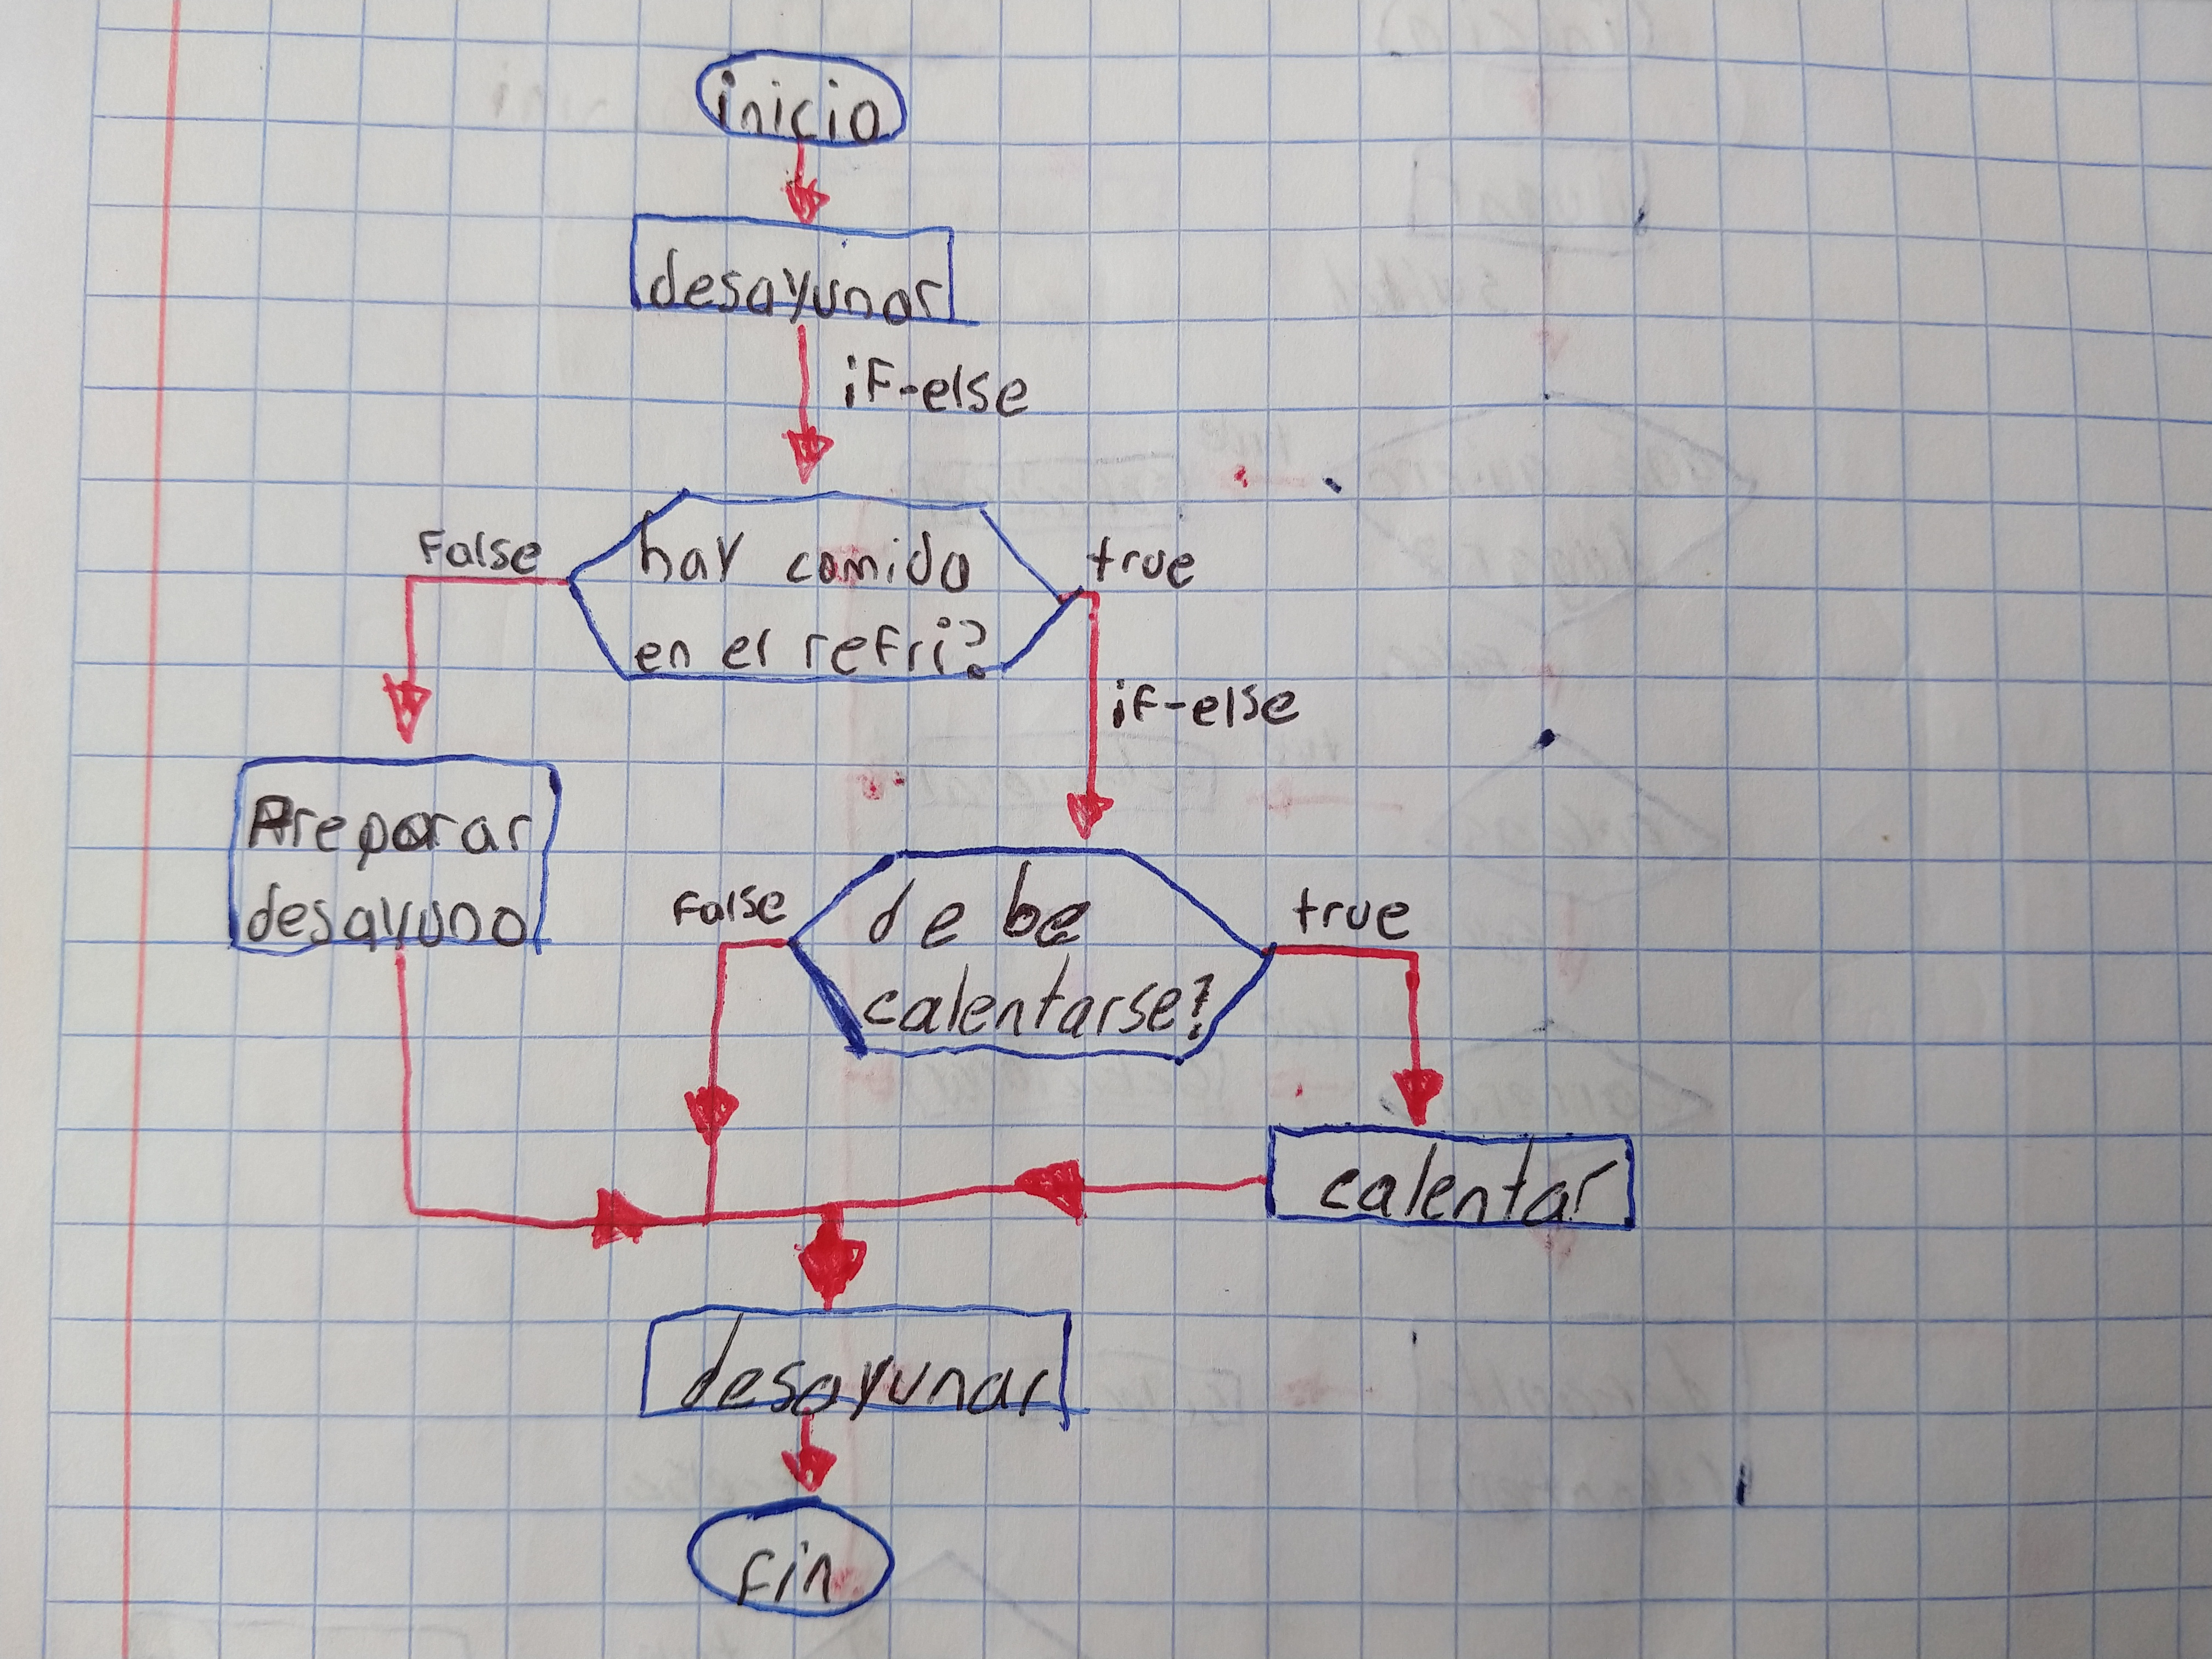 inicio
desayunar
if-else
False
hay comida
true
en el refri?
if-else
Preparar
desayuno
False
debe
true
calentarse?
calentar
desayunar
fin